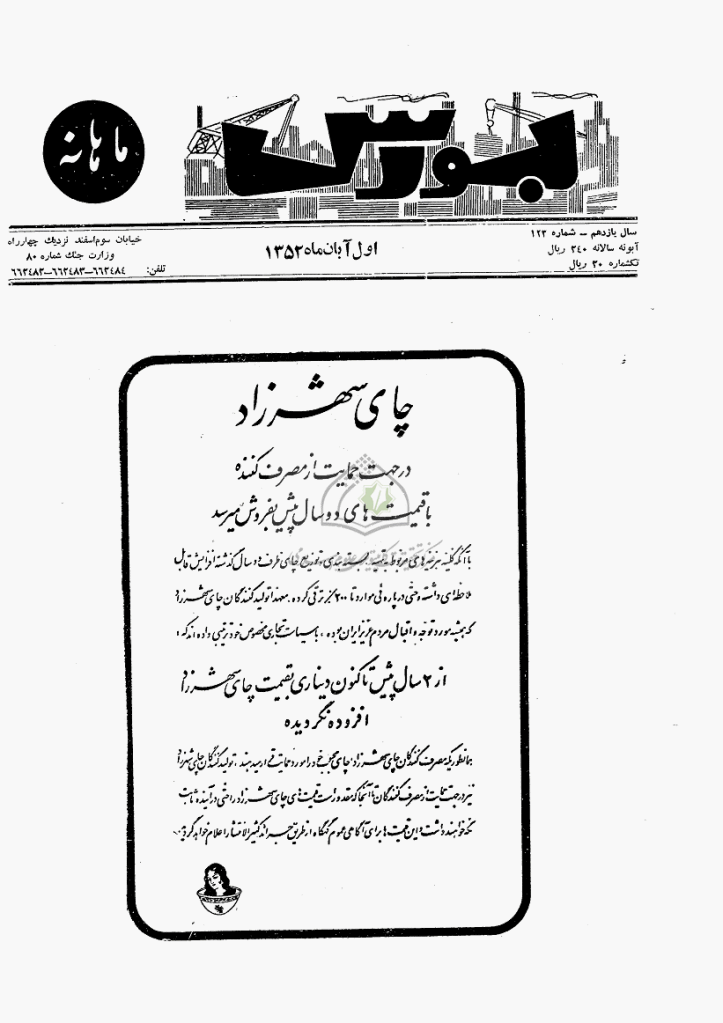 بورس
ماهانه
سال یازدهم – شماره ۱۲۳
آبونه سالانه ۲۴۰ ریال
تکشماره ۲۰ ریال
اول آبان ماه ۱۳۵۲
خیابان سوم اسفند نزدیك چهارراه
وزارت جنك شماره ۸۰
تلفن: ۶۶۲۴۸۴–۶۶۲۴۸۳–۶۶۲۴۸۳
چای شهرزاد
در جهت حمایت از مصرف کننده
با قیمت های دو سال پیش بفروش میرسد
با آنکه کلیه هزینه های مربوط به تهیه بسته بندی و توزیع چای ظرف دو سال گذشته افزایش قابل
ملاحظه ای داشته و حتی در پاره ئی موارد تا ۲۰۰٪ ترقی کرده. معهذا تولید کنندگان چای شهرزاد
که همیشه مورد توجه و اقبال مردم عزیز ایران بوده، با سیاست تجاری مخصوص خود ترتیبی داده اند که:
از ۲ سال پیش تا کنون دیناری بقیمت چای شهرزاد
افزوده نگردیده
همانطوریکه مصرف کنندگان چای شهرزاد چای محبوب خود را مورد حمایت قرار میدهند، تولید کنندگان چای شهرزاد
نیز در جهت حمایت از مصرف کنندگان تا آنجا که مقدور است قیمت های چای شهرزاد را حتی در آینده ثابت
نگه خواهند داشت و این قیمت ها برای آگاهی عموم گهگاه از طریق جراید کثیرالانتشار اعلام خواهد گردید...